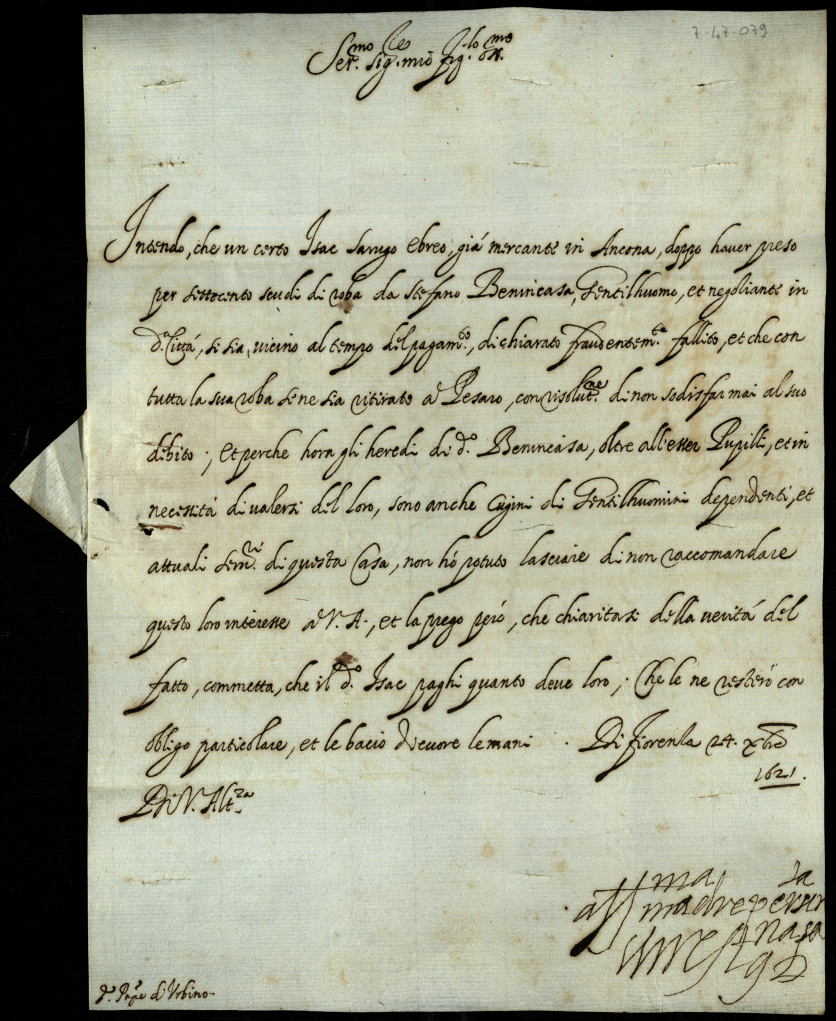 7-47-079
Ser.mo Sig.re mio fig.lo oss.mo
Intendo, che un certo Isac Sarugo Ebreo, già mercante in Ancona, doppo haver preso
per settecento scudi di roba da Stefano Benincasa, Gentilhuomo, et negoziante in
d.a Città, si sia, vicino al tempo del pagam.to, dichiarato fraudentem.te fallito, et che con
tutta la sua roba se ne sia ritirato a Pesaro, con risolut.ne di non sodisfar mai al suo
debito; et perche hora gli heredi di d.o Benincasa, oltre all'esser Pupilli, et in
necessità di valersi del loro, sono anche Cugini di Gentilhuomini dependenti, et
attuali ser.ri di questa Casa, non hò potuto lasciare di non raccomandare
questo loro interesse a V. A., et la prego però, che chiaritasi della verità del
fatto, commetta, che il d.o Isac paghi quanto deve loro; Che le ne resterò con
obligo particolare, et le bacio di cuore le mani. Di Fiorenza 24. Xbre
1621.
Di V. Alt.za
aff.ma
madre per ser.la
S.r Prpe d'Urbino